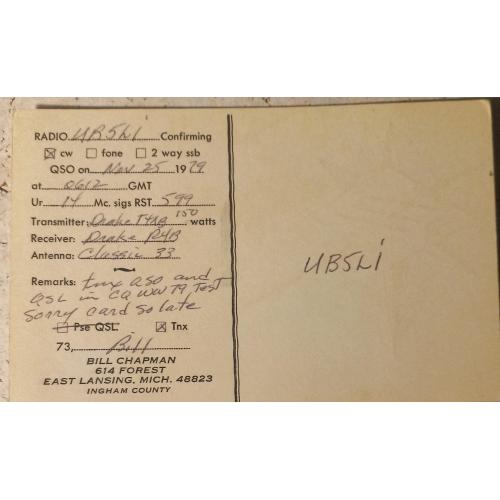 RADIO UB5LI Confirming
☒ cw ☐ fone ☐ 2 way ssb
QSO on Nov 25 1979
at 0612 GMT
Ur 14 Mc. sigs RST 599
Transmitter: Drake T4XB 150 watts
Receiver: Drake R4B
Antenna: Classic 33
Remarks: tnx QSO and
QSL in CQ WW 79 Test
Sorry card so late
☐ Pse QSL ☒ Tnx
73, Bill
BILL CHAPMAN
614 FOREST
EAST LANSING, MICH. 48823
INGHAM COUNTY
UB5LI